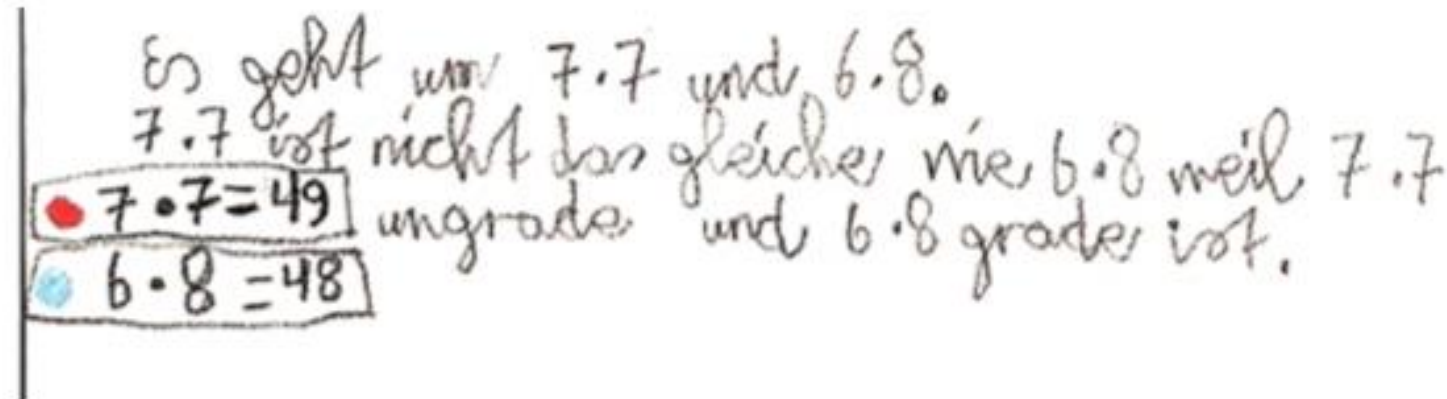 Es geht um 7·7 und 6·8.
7·7 ist nicht das gleiche wie 6·8 weil 7·7
7·7=49 ungrade und 6·8 grade ist.
6·8=48